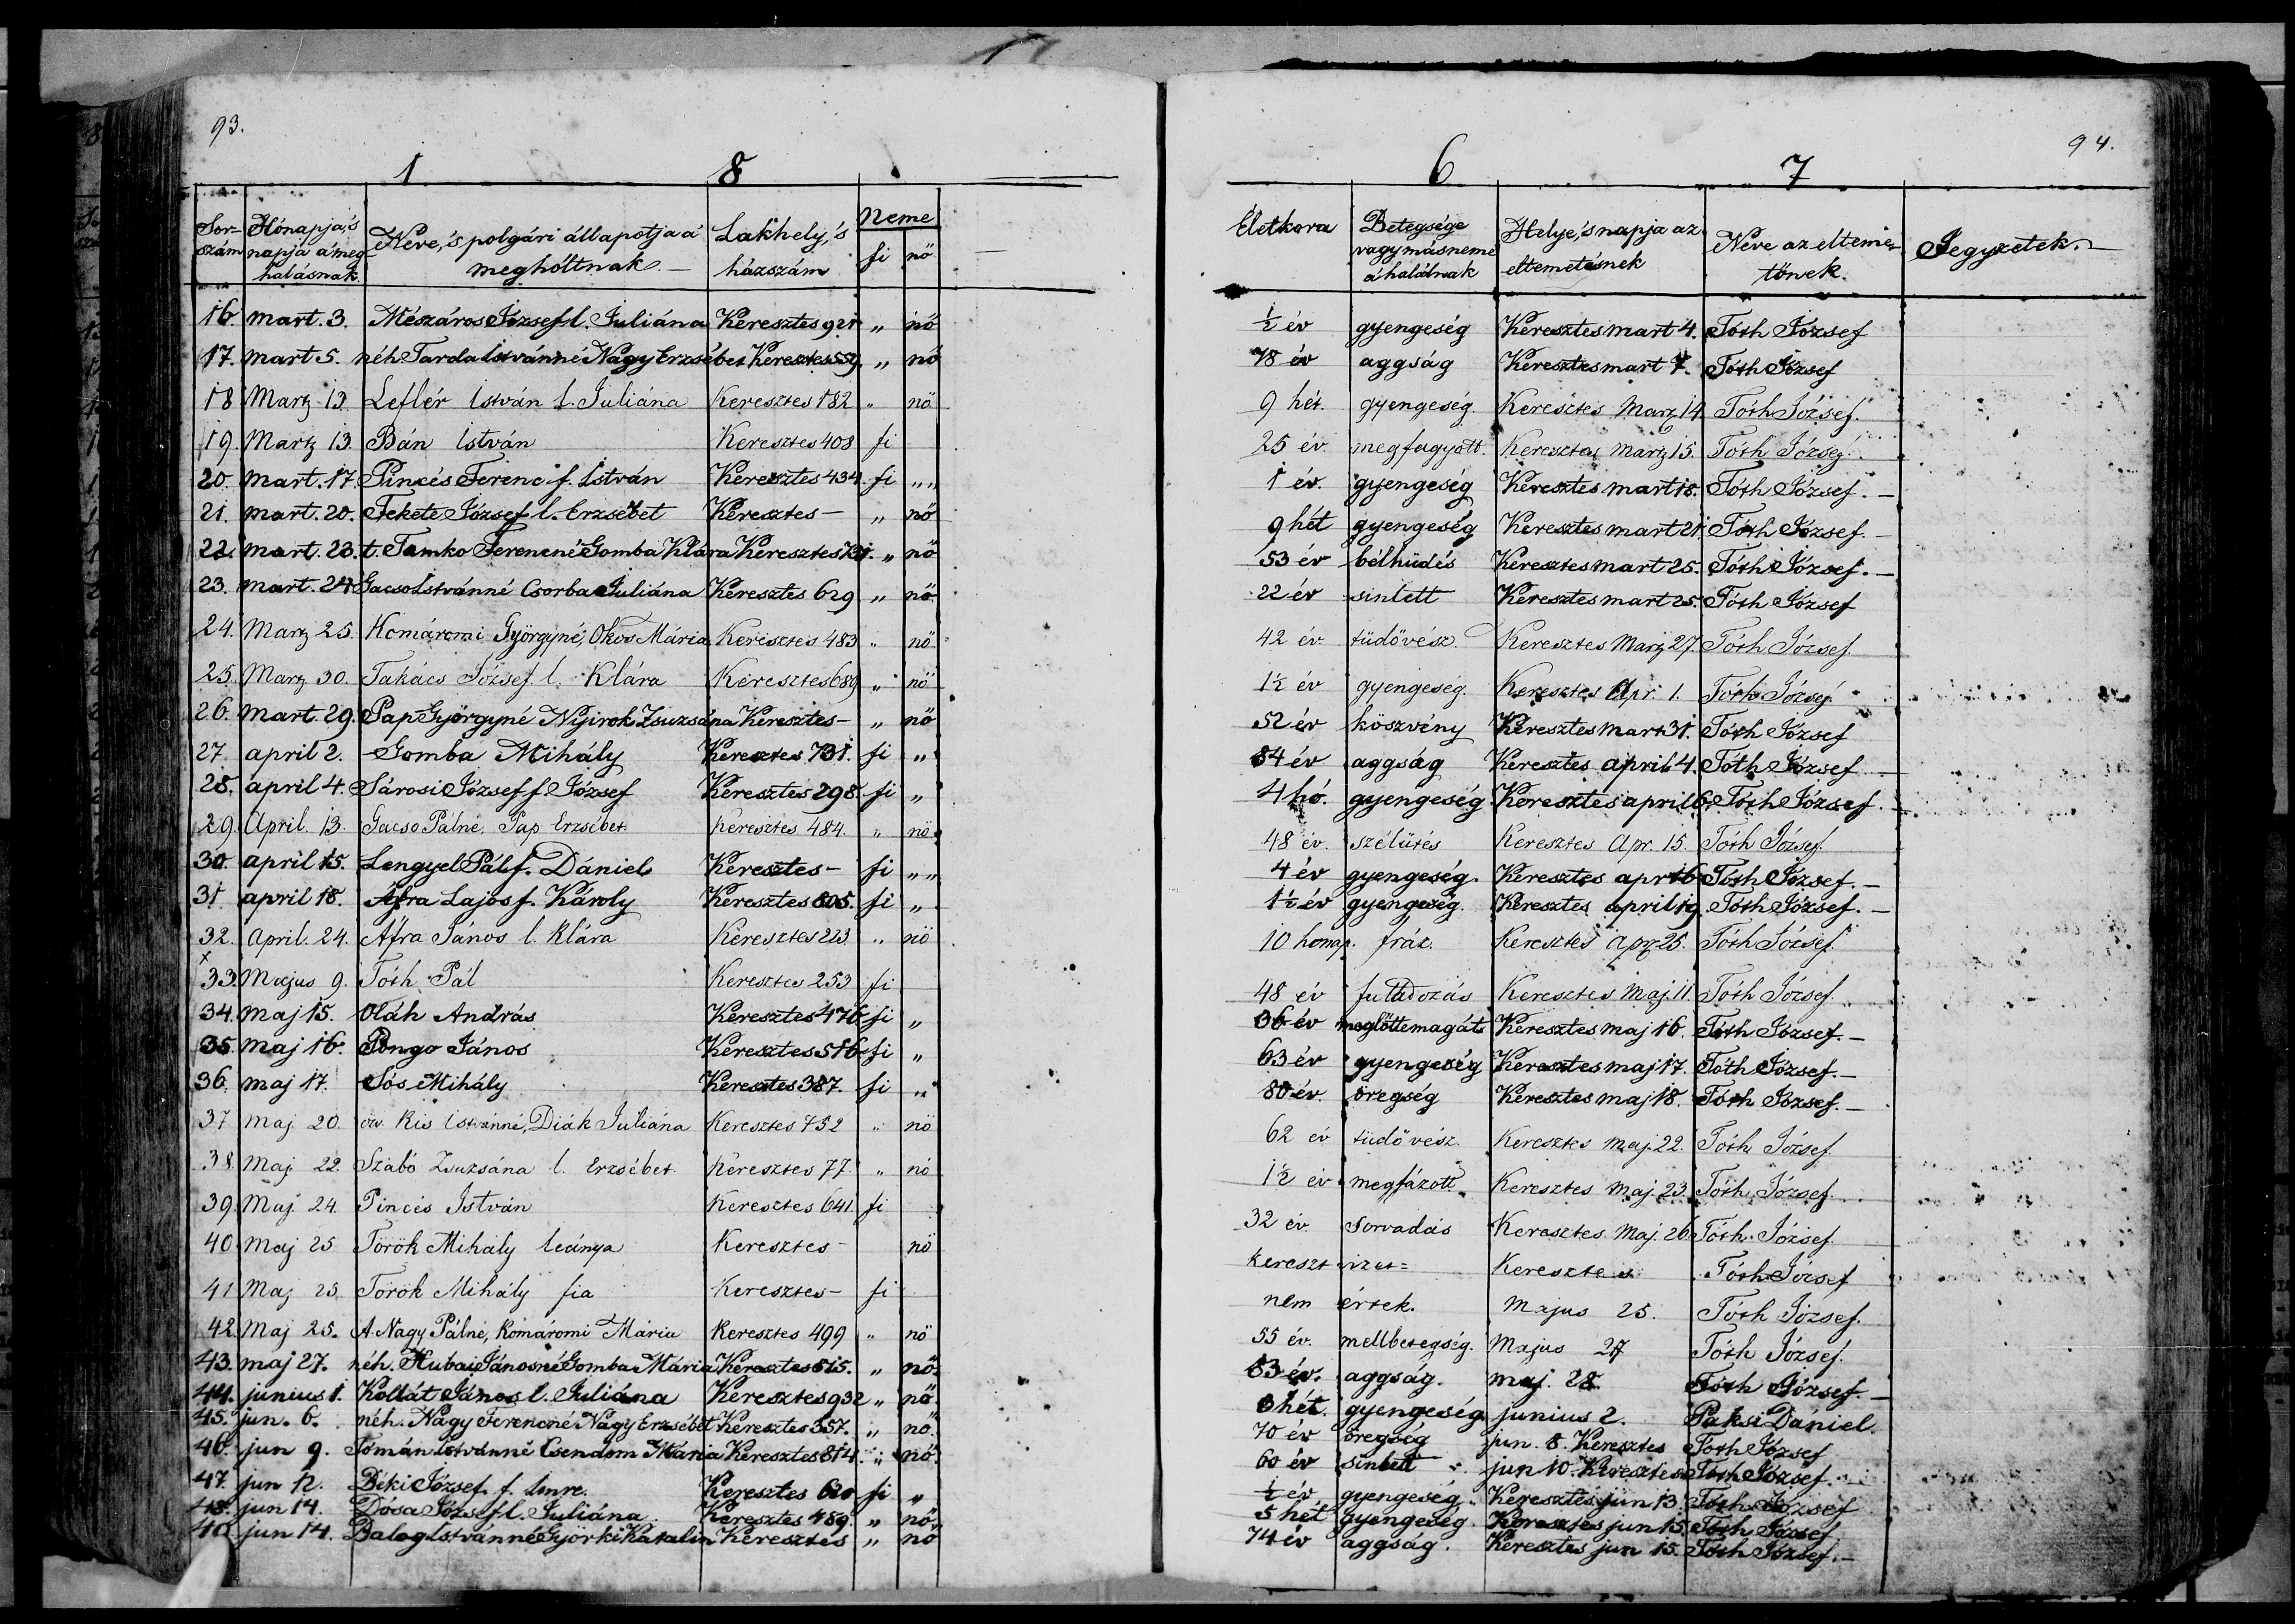 93.
1 8
Sor-szám Hónapja,'s napja a' meg-halásnak. Neve,'s polgári állapotja a' meghóltnak.— Lakhely,'s házszám Neme fi nö
16. mart. 3. Mészáros József l. Juliána Keresztes 921 „ nö
17. mart 5. néh Tarda Istvánné Nagy Erzsébet Keresztes 559. „ nö
18 Martz 13. Leflér István l. Juliána Keresztes 182 „ nö
19. Martz 13. Bán István Keresztes 408 fi
20. mart. 17. Pinczés Ferenc f. István Keresztes 434 fi „„
21. mart. 20. Fekete József l. Erzsébet Keresztes – „ nö
22. mart. 23. t. Tamko Ferencné Gomba Klára Keresztes 731. „ nö
23. mart. 24 Gacso Istvánné Csorba Juliána Keresztes 629 „ nö.
24. Marz 25. Komáromi Györgyné, Okos Mária Keresztes 483 „ nö
25. Marz 30. Takács József l. Klára Keresztes 689 „ nö
26. mart. 29. Pap Györgyné Nyirok Zsuzsána Keresztes – „ nö
27. april 2. Gomba Mihály Keresztes 731. fi „
28. april 4. Sárosi József f. József Keresztes 298. fi „
29. April. 13. Gacso Pálné, Pap Erzsébet Keresztes 484. „ nö
30. april 15. Lengyel Pál f. Dániel Keresztes – fi „„
31 april 18. Áfra Lajos f. Károly Keresztes 805. fi „
32. April. 24. Áfra János l. Klára Keresztes 223 „ nö
x
33. Majus 9. Tóth Pál Keresztes 253 fi
34. maj 15. Oláh András Keresztes 476 fi „
35. maj 16. Pongo János Keresztes 516 fi „
36. maj 17. Sós Mihály Keresztes 387. fi „
37 maj 20. özv. Kis Istvánné, Diák Juliána Keresztes 752 „ nö
38. Maj 22. Szabó Zsuzsána l. Erzsébet Keresztes 77. „ nö
39. Maj 24. Pincés István Keresztes 641. fi
40. maj 25 Török Mihály leánya Keresztes – nö
41 Maj 25. Török Mihály fia Keresztes – fi
42. Maj 25. A. Nagy Pálné, Komáromi Mária Keresztes 499 „ nö
43. maj 27. néh. Hubai Jánosné Gomba Mária Keresztes 515. „ nö.
44. junius 1. Kollát János l. Juliána Keresztes 932 „ nö.
45. jun. 6. néh. Nagy Ferencné Nagy Erzsébet Keresztes 357. „ nö.
46. jun 9. Tomán Istvánné Csendom Mária Keresztes 814. „ nö.
47. jun 12. Béki József f. Imre. Keresztes 620 fi „
48. jun 14. Dósa József l. Juliána. Keresztes 489 „ nö.
49. jun 14. Balog Istvánné Györki Katalin Keresztes „ nö
94.
6 7
Életkora Betegsége vagy másneme a' halálnak Helye,'s napja az eltemetésnek Neve az elteme-tönek. Jegyzetek.—
½ év gyengeség Keresztes mart 4. Tóth József
78 év aggság Keresztes mart 7. Tóth József
9 hét. gyengeség. Keresztes Marz 14 Tóth József.
25 év. megfagyott. Keresztes Marz 15. Tóth József.
1 év. gyengeség Keresztes mart 18. Tóth József.—
9 hét gyengeség Keresztes mart 21. Tóth József.—
53 év bélhüdés Keresztes mart 25. Tóth József.—
22 év sinlett Keresztes mart 25. Tóth József
42 év. tüdövész. Keresztes Marz 27. Tóth József.
1½ év gyengeség. Keresztes Apr. 1. Tóth József.
52 év köszvény Keresztes mart 31. Tóth József
84 év aggság Keresztes april 4. Tóth József
4 hó. gyengeség. Keresztes april 6. Tóth József.
48 év. szélütés Keresztes Apr. 15. Tóth József.
4 év gyengeség. Keresztes apr 16 Tóth József.—
1½ év gyengeség. Keresztes april 19. Tóth József.—
10 honap. fráz. Keresztes Apr 25. Tóth József.
48 év fulladozás Keresztes Maj. 11. Tóth József.
36 év meglötte magát Keresztes maj 16. Tóth József.—
63 év gyengeség Keresztes maj 17. Tóth József.—
80 év. öregség Keresztes maj 18. Tóth József.—
62 év tüdövész. Keresztes maj. 22. Tóth József
1½ év megfázott. Keresztes Maj. 23. Tóth József.
32 év. sorvadás Keresztes Maj. 26. Tóth József.
kereszt vizet= Keresztes Tóth József
nem értek. Majus 25. Tóth József.
55 év. mellbetegség. Majus 27 Tóth József.
83 év. aggság. maj. 28. Tóth József.—
3 hét. gyengeség junius 2. Paksi Dániel.
70 év öregség jun. 8. Keresztes Tóth József
60 év sinlett jun 10. Keresztes Tóth József.
½ év gyengeség. Keresztes jun 13. Tóth József
5 hét gyengeség. Keresztes jun 15. Tóth József.
74 év aggság. Keresztes jun 15. Tóth József.—